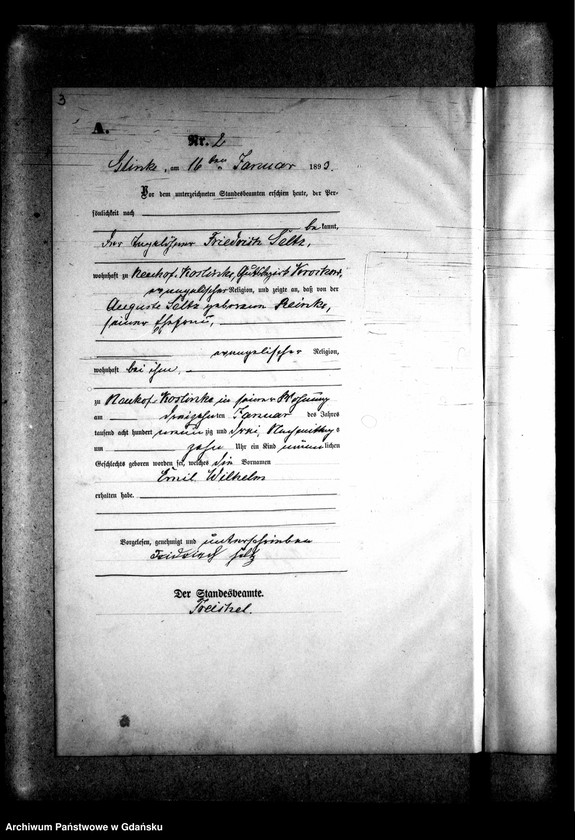 3
A.
Nr. 2
Glinke, am 16ten Januar 1893.
Vor dem unterzeichneten Standesbeamten erschien heute, der Per-
sönlichkeit nach
bekannt,
der Friedrich Seltz,
wohnhaft zu Neuhof-Koslinke, Gutsbezirk
evangelischer Religion, und zeigte an, daß von der
Auguste Seltz geborenen Reinke,
seiner Ehefrau,
evangelischer Religion,
wohnhaft bei ihm,
zu Neuhof-Koslinke in seiner Wohnung
am dreizehnten Januar des Jahres
tausend acht hundert neunzig und drei, Nachmittags
um zehn Uhr ein Kind männlichen
Geschlechts geboren worden sei, welches die Vornamen
Emil Wilhelm
erhalten habe.
Vorgelesen, genehmigt und unterschrieben
Der Standesbeamte.
Archiwum Państwowe w Gdańsku